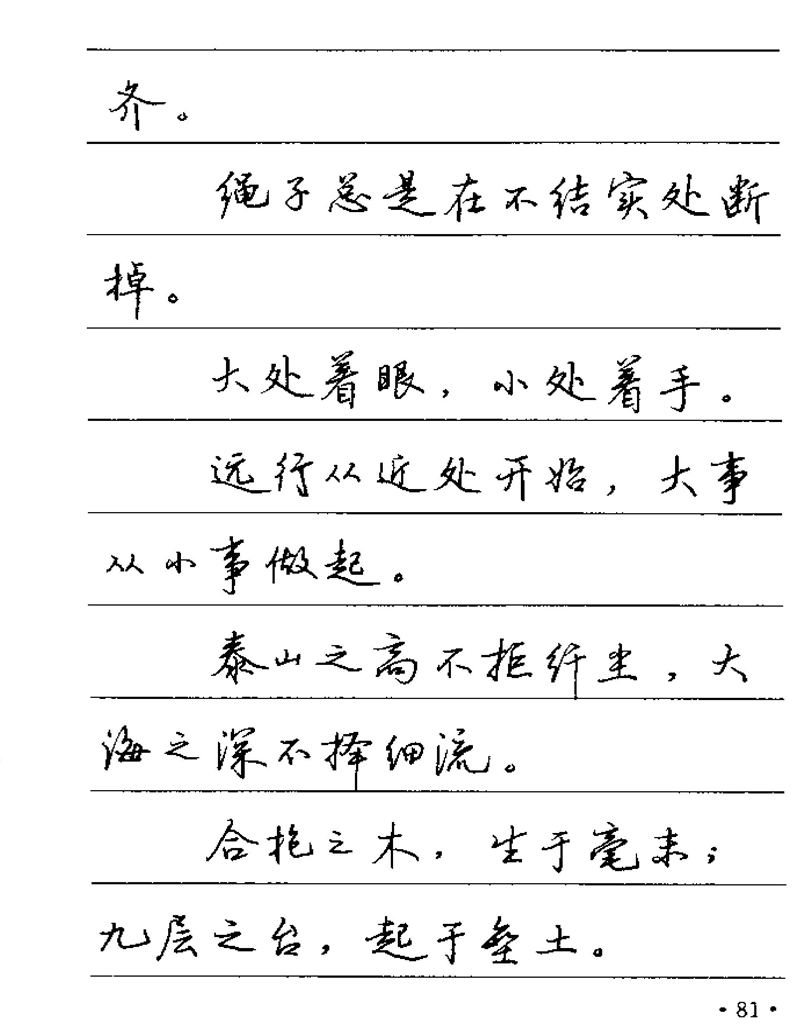 齐。
绳子总是在不结实处断
掉。
大处着眼，小处着手。
远行从近处开始，大事
从小事做起。
泰山之高不拒纤尘，大
海之深不择细流。
合抱之木，生于毫末；
九层之台，起于垒土。
·81·